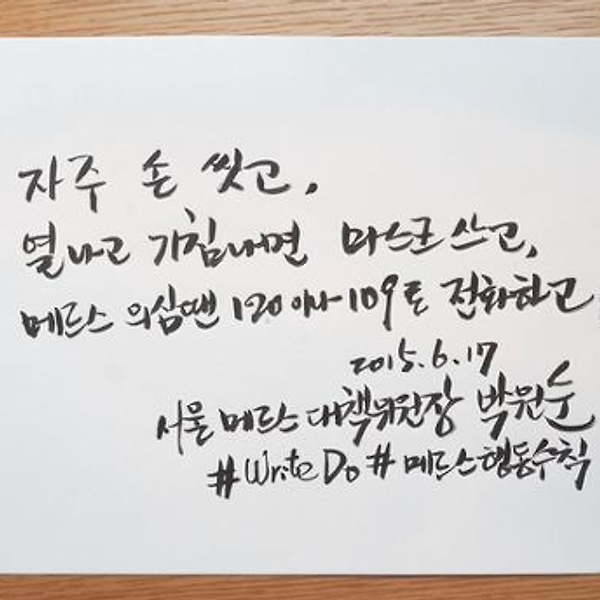 자주 손 씻고,
열나고 기침나면 마스크 쓰고,
메르스 의심땐 120이나 109로 전화하고
2015.6.17
서울 메르스 대책위원장 박원순
#Write Do #메르스행동수칙